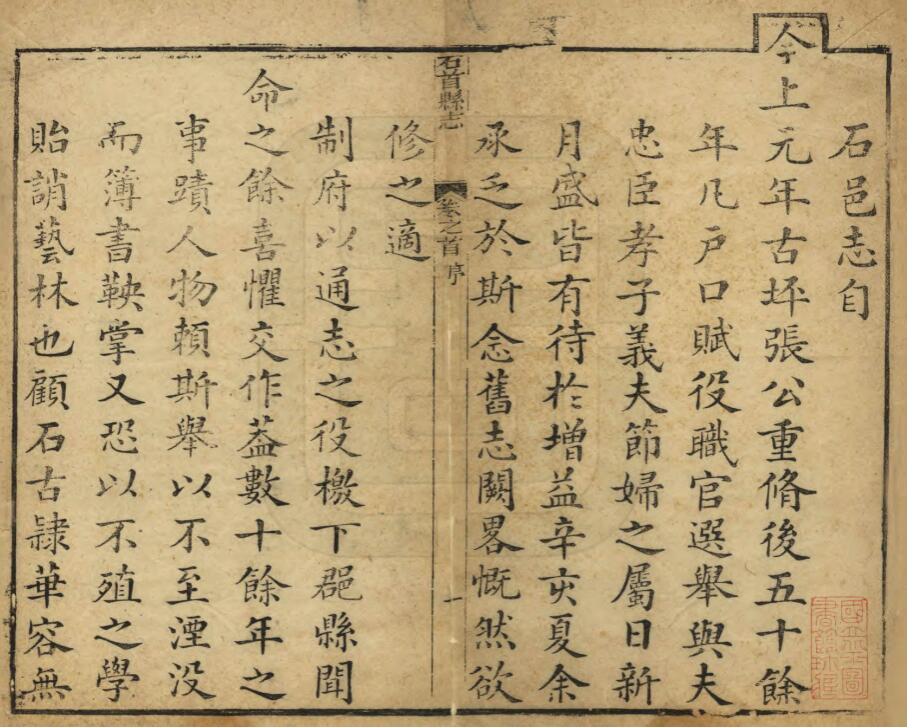 石邑志自
今上元年古坪張公重脩後五十餘
年凡戸口賦役職官選舉與夫
忠臣孝子義夫節婦之屬日新
月盛皆有待於增益辛亥夏余
承乏於斯念舊志闕畧慨然欲
修之適
石首縣志
卷之首
序
一
制府以通志之役檄下郡縣聞
命之餘喜懼交作葢數十餘年之
事蹟人物頼斯舉以不至湮没
而簿書鞅掌又恐以不殖之學
貽誚藝林也顧石古隷華容無